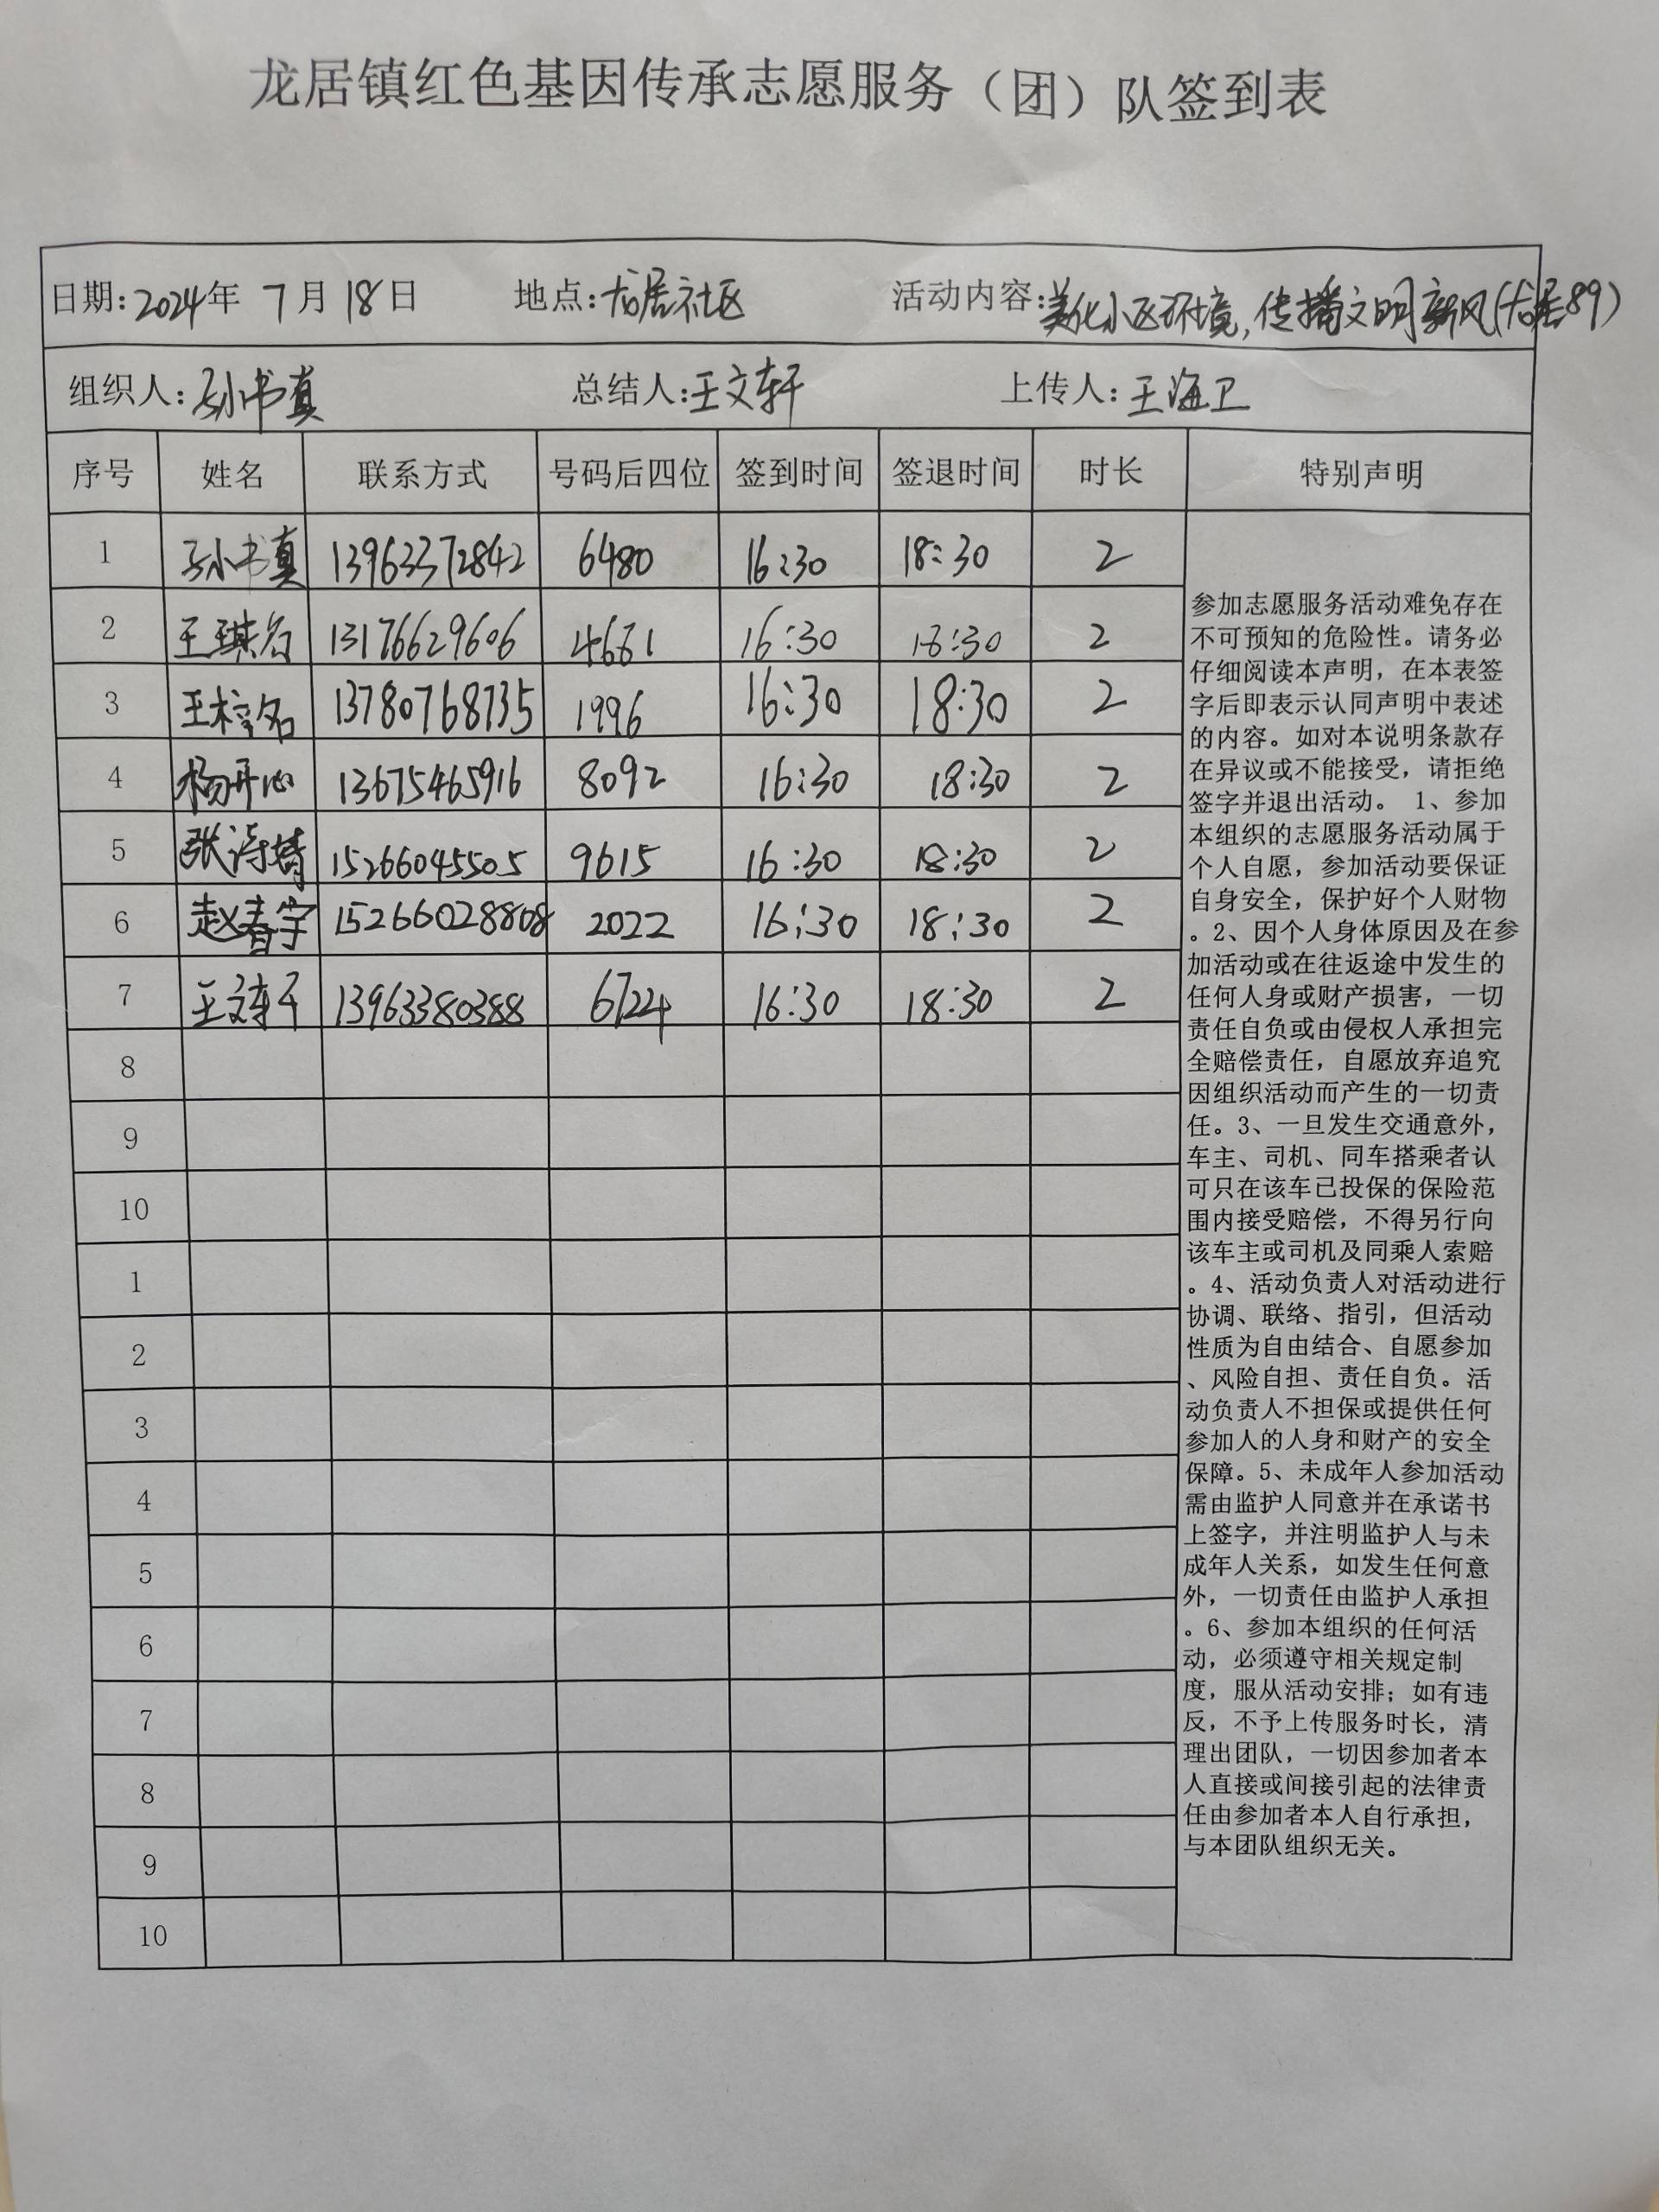 龙居镇红色基因传承志愿服务（团）队签到表
日期：2024年 7月18日 地点：龙居社区 活动内容：美化小区环境，传播文明新风（龙居89）
组织人：孙书真 总结人：王文轩 上传人：王海卫
序号 姓名 联系方式 号码后四位 签到时间 签退时间 时长 特别声明
1 孙书真 13963372842 6480 16:30 18:30 2
2 王琪名 13176629606 4661 16:30 18:30 2
3 王梓名 13780768735 1996 16:30 18:30 2
4 杨开心 13675465916 8092 16:30 18:30 2
5 张涛婧 15266045505 9615 16:30 18:30 2
6 赵春宇 15266028808 2022 16:30 18:30 2
7 王文轩 13963380388 6724 16:30 18:30 2
8
9
10
1
2
3
4
5
6
7
8
9
10
参加志愿服务活动难免存在
不可预知的危险性。请务必
仔细阅读本声明，在本表签
字后即表示认同声明中表述
的内容。如对本说明条款存
在异议或不能接受，请拒绝
签字并退出活动。 1、参加
本组织的志愿服务活动属于
个人自愿，参加活动要保证
自身安全，保护好个人财物
。2、因个人身体原因及在参
加活动或在往返途中发生的
任何人身或财产损害，一切
责任自负或由侵权人承担完
全赔偿责任，自愿放弃追究
因组织活动而产生的一切责
任。3、一旦发生交通意外，
车主、司机、同车搭乘者认
可只在该车已投保的保险范
围内接受赔偿，不得另行向
该车主或司机及同乘人索赔
。4、活动负责人对活动进行
协调、联络、指引，但活动
性质为自由结合、自愿参加
、风险自担、责任自负。活
动负责人不担保或提供任何
参加人的人身和财产的安全
保障。5、未成年人参加活动
需由监护人同意并在承诺书
上签字，并注明监护人与未
成年人关系，如发生任何意
外，一切责任由监护人承担
。6、参加本组织的任何活
动，必须遵守相关规定制
度，服从活动安排；如有违
反，不予上传服务时长，清
理出团队，一切因参加者本
人直接或间接引起的法律责
任由参加者本人自行承担，
与本团队组织无关。